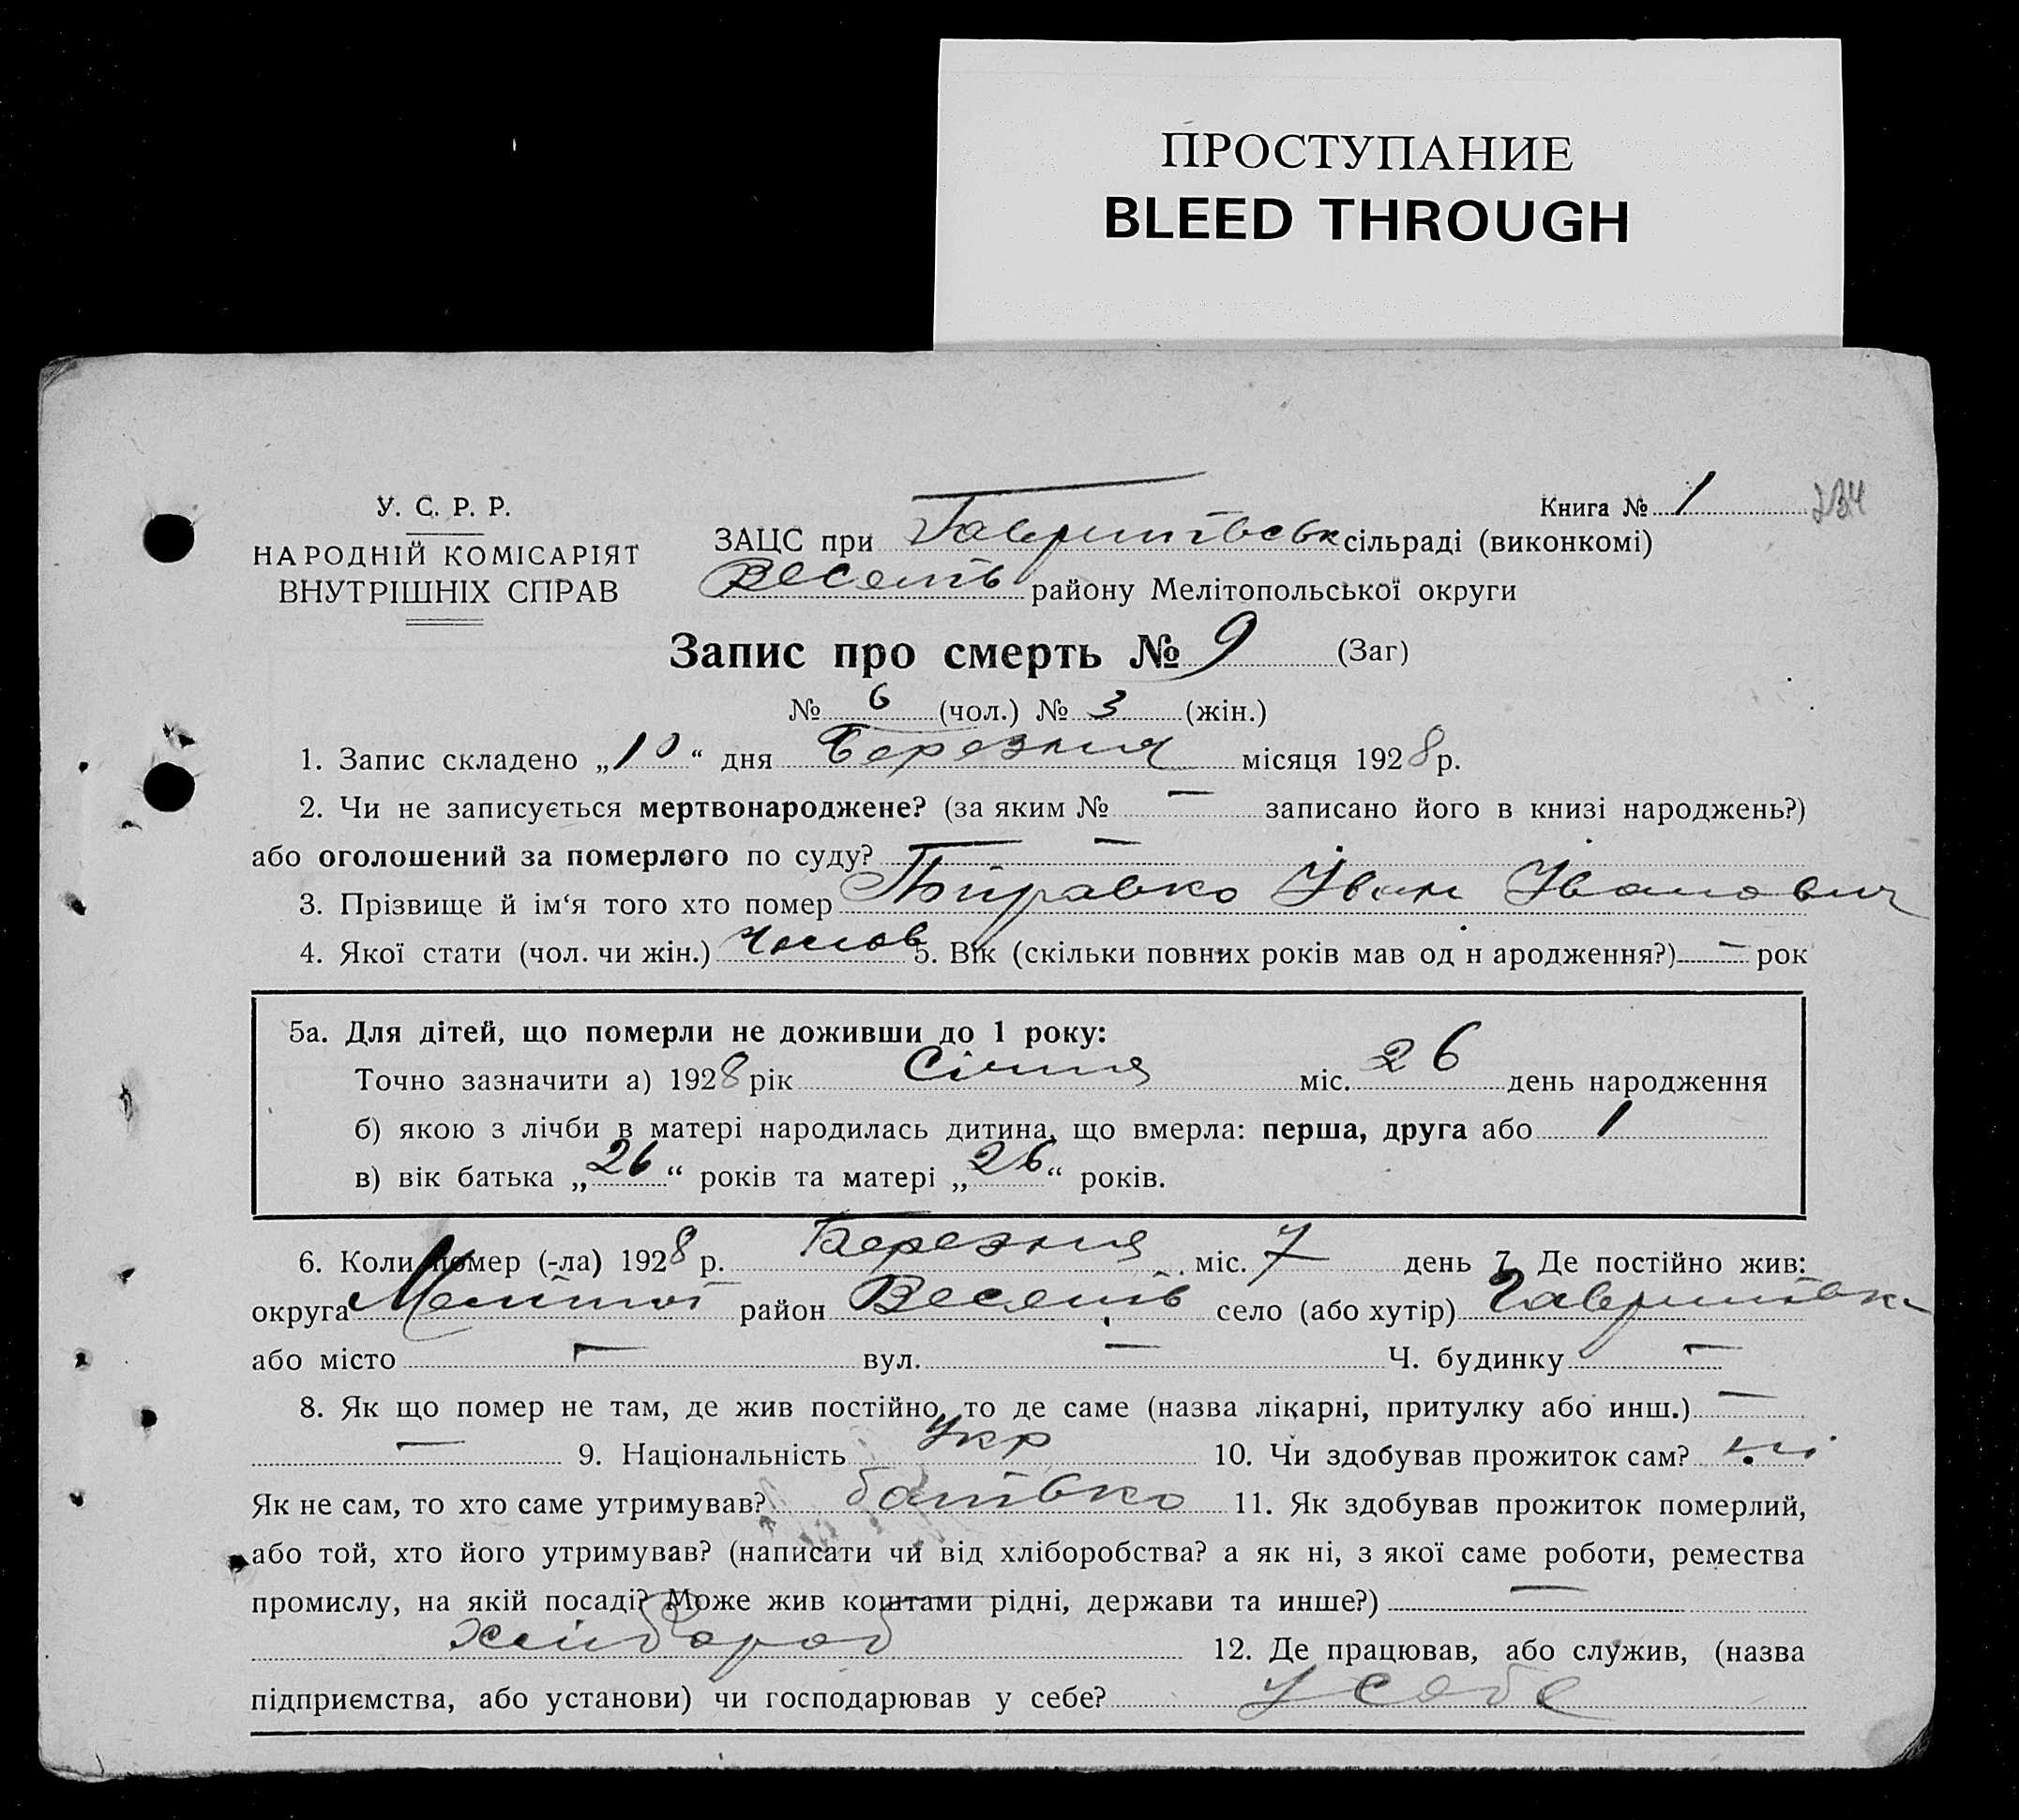 ПРОСТУПАНИЕ
BLEED THROUGH
У. С. Р. Р.
НАРОДНІЙ КОМІСАРІЯТ
ВНУТРІШНІХ СПРАВ
Книга № 1 234
ЗАЦС при сільраді (виконкомі)
Веселів району Мелітопольської округи
Запис про смерть № 9 (Заг)
№ 6 (чол.) № 3 (жін.)
1. Запис складено „10“ дня Березня місяця 1928 р.
2. Чи не записується мертвонароджене? (за яким № — записано його в книзі народжень?)
або оголошений за померлого по суду? —
3. Прізвище й ім‘я того хто помер Іван Іванович
4. Якої стати (чол. чи жін.) Чолов 5. Вік (скільки повних років мав од н ародження?) — рок
5а. Для дітей, що померли не доживши до 1 року:
Точно зазначити а) 1928 рік Січня міс. 26 день народження
б) якою з лічби в матері народилась дитина, що вмерла: перша, друга або 1
в) вік батька „26“ років та матері „26“ років.
6. Коли помер (-ла) 1928 р. Березня міс. 7 день 7. Де постійно жив:
округа Меліт район Веселів село (або хутір)
або місто — вул. — Ч. будинку —
8. Як що помер не там, де жив постійно, то де саме (назва лікарні, притулку або инш.) —
— 9. Національність Укр 10. Чи здобував прожиток сам? ні
Як не сам, то хто саме утримував? батько 11. Як здобував прожиток померлий,
або той, хто його утримував? (написати чи від хліборобства? а як ні, з якої саме роботи, ремества
промислу, на якій посаді? Може жив коштами рідні, держави та инше?) —
хлібороб 12. Де працював, або служив, (назва
підприємства, або установи) чи господарював у себе? у себе